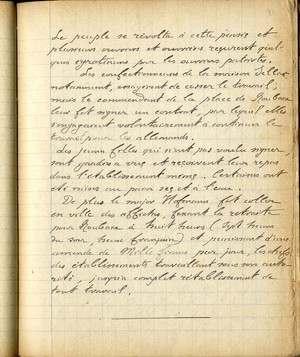 Le peuple se révolta à cette pensée et
plusieurs ouvriers et ouvrières reçurent quel-
ques égratignures par les ouvriers patriotes.
Les confectionneuses de la maison Selle
notamment, essayèrent de cesser le travail;
mais le commandant de la place de Roubaix
leur fit signer un contrat, par lequel elles
s'engageaient volontairement à continuer le
travail pour les allemands.
Les jeunes filles qui n'ont pas voulu signer,
sont gardées à vue et reçoivent leur repos
dans l'établissement même. Certaines ont
été mises au pain sec et à l'eau.
De plus le major Hofmann fit coller
en ville des affiches, fixant la retraite
pour Roubaix à huit heures (sept heures
du soir, heure française) et punissant d'une
amende de Mille francs par jour, les chefs
des établissements travaillant sous son auto-
rité, jusqu'à complet rétablissement de
tout travail.